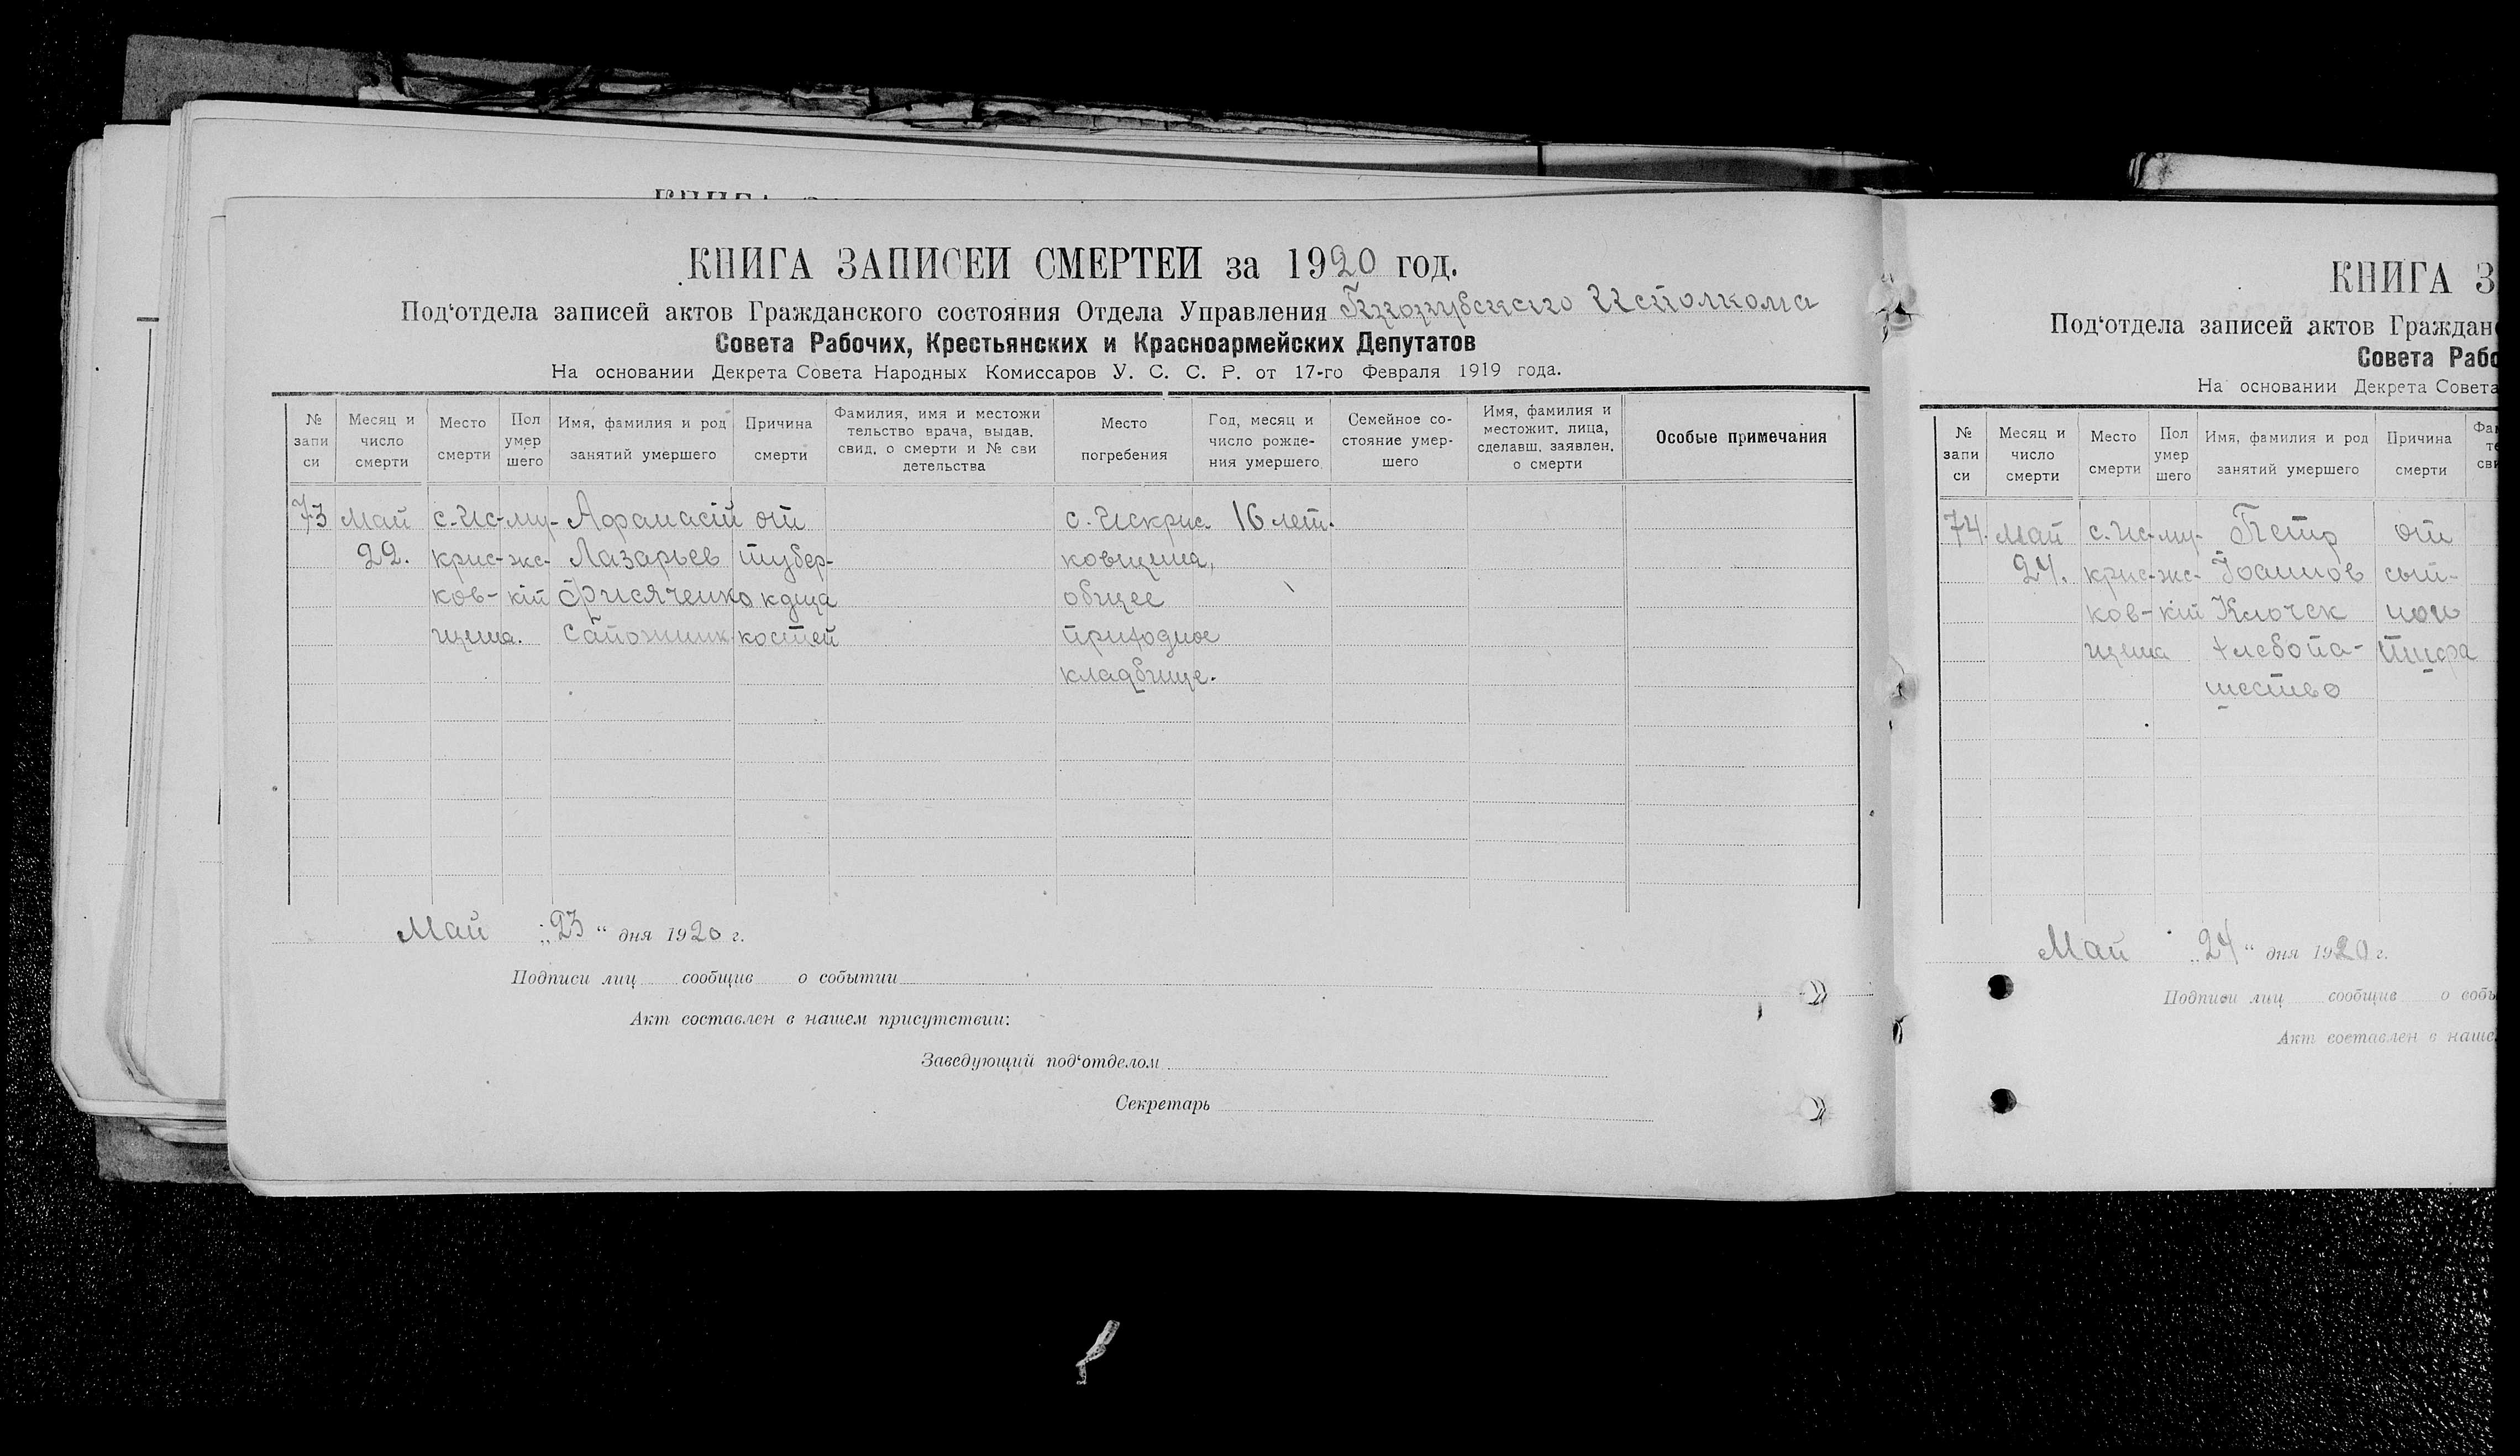 КНИГА ЗАПИСЕЙ СМЕРТЕЙ за 1920 год.
Под‘отдела записей актов Гражданского состояния Отдела Управления Исполкома
Совета Рабочих, Крестьянских и Красноармейских Депутатов
На основании Декрета Совета Народных Комиссаров У. С. С. Р. от 17-го Февраля 1919 года.
№ запи си
Месяц и число смерти
Место смерти
Пол умер шего
Имя, фамилия и род занятий умершего
Причина смерти
Фамилия, имя и местожи тельство врача, выдав. свид. о смерти и № сви детельства
Место погребения
Год, месяц и число рожде- ния умершего
Семейное со- стояние умер- шего
Имя, фамилия и местожит. лица, сделавш. заявлен. о смерти
Особые примечания
73 Май с. Ис- му- Афанасій от с. Искрис 16 лет.
22. крис- жс- Лазарьев тубер- ковщина,
ков- кій Фисяченко кдеза общее
щина. сапожник костей приходное
кладбище.
Май „23“ дня 1920 г.
Подписи лиц сообщив о событии
Акт составлен в нашем присутствии:
Заведующий под‘отделом
Секретарь
КНИГА З
Под‘отдела записей актов Граждан
Совета Рабо
На основании Декрета Совета
№ запи си
Месяц и число смерти
Место смерти
Пол умер шего
Имя, фамилия и род занятий умершего
Причина смерти
74. Май с. Ис- му- Петр от
24. крис- жс- Іоаннов сып-
ков- кій Клочек ного
щина хлебопа- тифа
шество
Май „24“ дня 1920 г.
Подписи лиц сообщив о собы
Акт составлен в наше